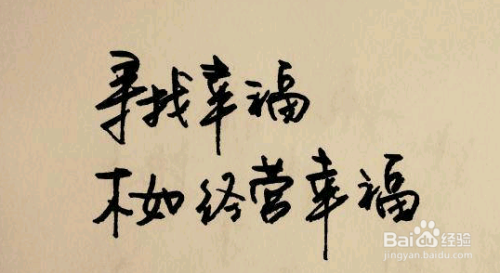 寻找幸福
不如经营幸福
Baidu经验
jingyan.baidu.com